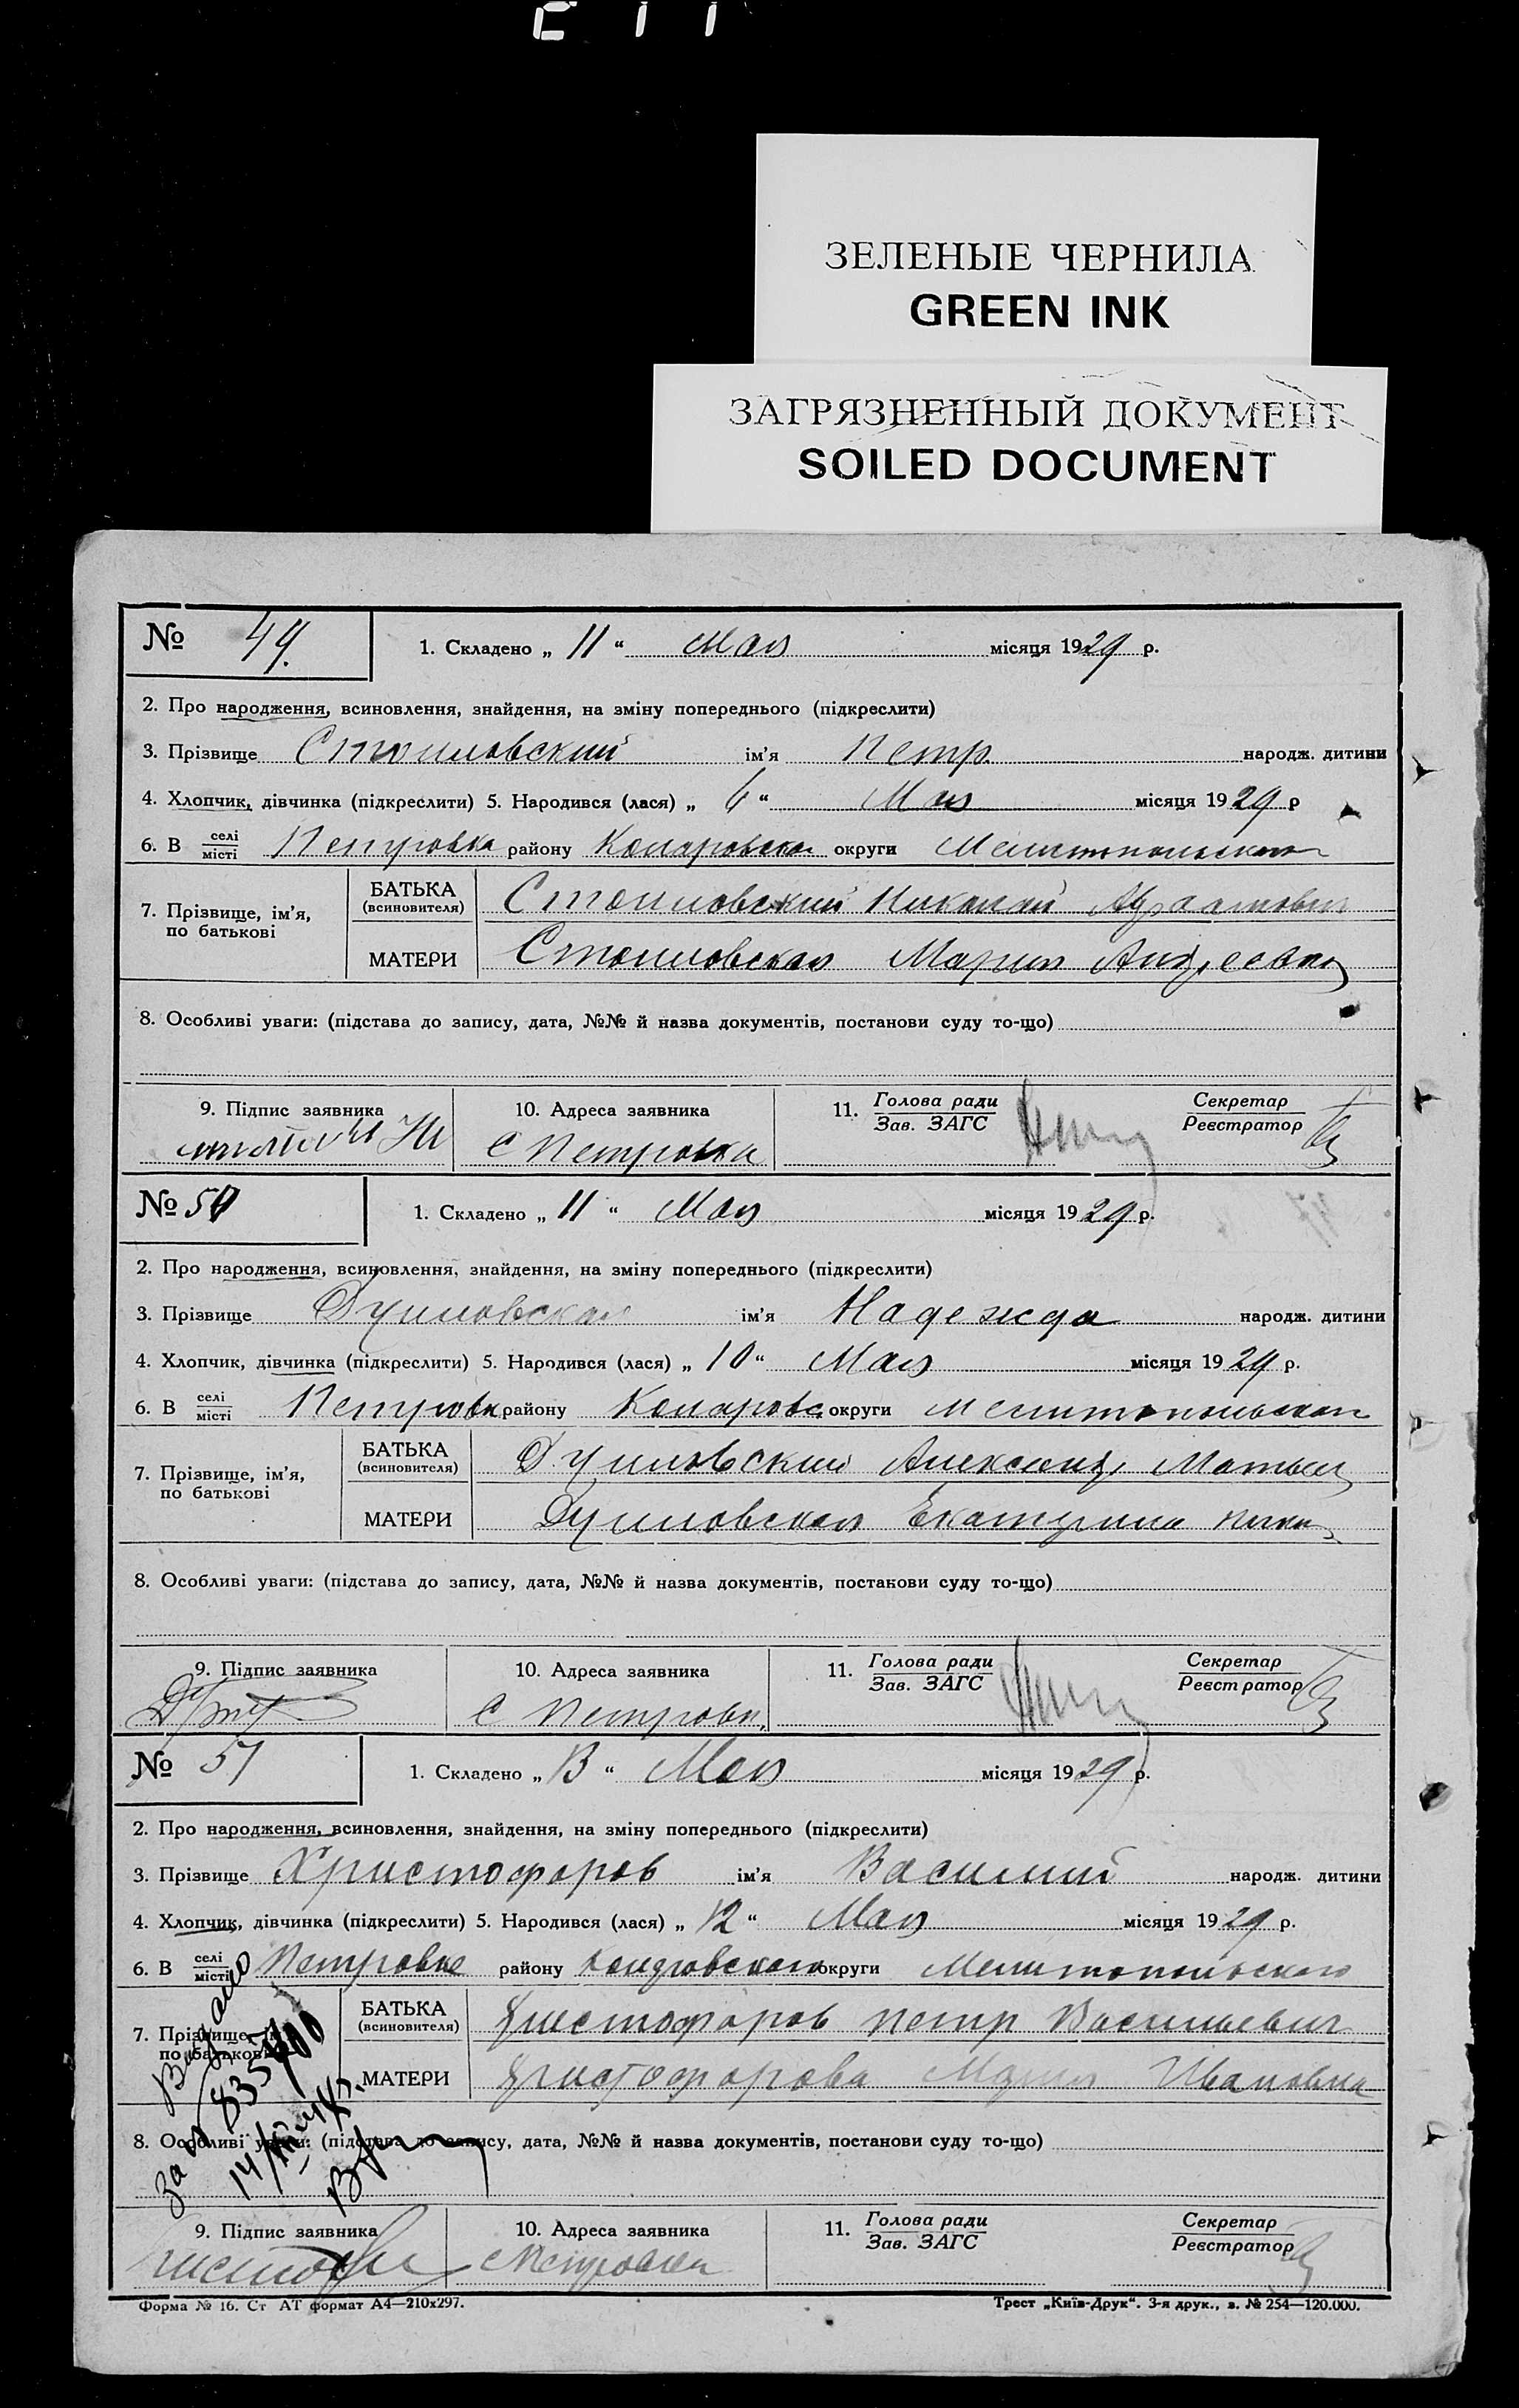 ЗЕЛЕНЫЕ ЧЕРНИЛА
GREEN INK
ЗАГРЯЗНЕННЫЙ ДОКУМЕНТ
SOILED DOCUMENT
№ 49. 1. Складено „ 11 “ Мая місяця 1929 р.
2. Про народження, всиновлення, знайдення, на зміну попереднього (підкреслити)
3. Прізвище Стоиловский ім'я Петр. народж. дитини
4. Хлопчик, дівчинка (підкреслити) 5. Народився (лася) „ 6 “ Мая місяця 1929 р
6. В селі/місті Петровка району округи Мелитопольского
7. Прізвище, ім'я, по батькові
БАТЬКА (всиновителя) Стоиловский Николай
МАТЕРИ Стоиловская Мария Андреевна
8. Особливі уваги: (підстава до запису, дата, №№ й назва документів, постанови суду то-що)
9. Підпис заявника 10. Адреса заявника 11. Голова ради/Зав. ЗАГС Секретар/Реєстратор
С Петровка
№ 50 1. Складено „ 11 “ Мая місяця 1929 р.
2. Про народження, всиновлення, знайдення, на зміну попереднього (підкреслити)
3. Прізвище ім'я Надежда народж. дитини
4. Хлопчик, дівчинка (підкреслити) 5. Народився (лася) „ 10 “ Мая місяця 1929 р.
6. В селі/місті Петровка району округи Мелитопольского
7. Прізвище, ім'я, по батькові
БАТЬКА (всиновителя) Александр
МАТЕРИ Екатерина
8. Особливі уваги: (підстава до запису, дата, №№ й назва документів, постанови суду то-що)
9. Підпис заявника 10. Адреса заявника 11. Голова ради/Зав. ЗАГС Секретар/Реєстратор
С Петровк
№ 51 1. Складено „ 13 “ Мая місяця 1929 р.
2. Про народження, всиновлення, знайдення, на зміну попереднього (підкреслити)
3. Прізвище Христофоров ім'я Василий народж. дитини
4. Хлопчик, дівчинка (підкреслити) 5. Народився (лася) „ 12 “ Мая місяця 1929 р.
6. В селі/місті Петровке району округи Мелитопольского
7. Прізвище, ім'я, по батькові
БАТЬКА (всиновителя) Христофоров Петр Васильевич
МАТЕРИ Христофорова Мария Ивановна
8. Особливі уваги: (підстава до запису, дата, №№ й назва документів, постанови суду то-що)
9. Підпис заявника 10. Адреса заявника 11. Голова ради/Зав. ЗАГС Секретар/Реєстратор
Форма № 16. Ст АТ формат А4—210x297. Трест „Київ-Друк“. 3-я друк., з. № 254—120.000.